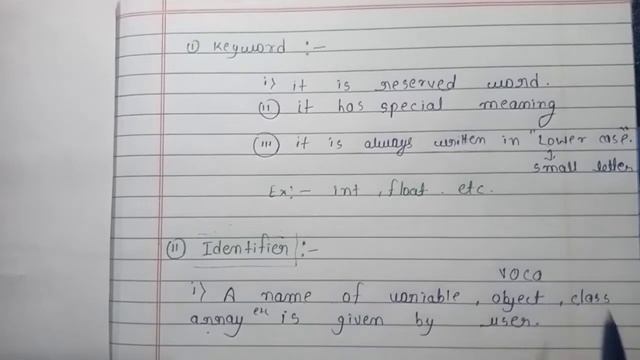 (i) Keyword :-
i) it is reserved word.
(ii) it has special meaning
(iii) it is always written in "Lower case".
small letter
Ex:- int, float. etc.
(ii) Identifier :-
VOCA
i) A name of variable, object, class
array is given by user.